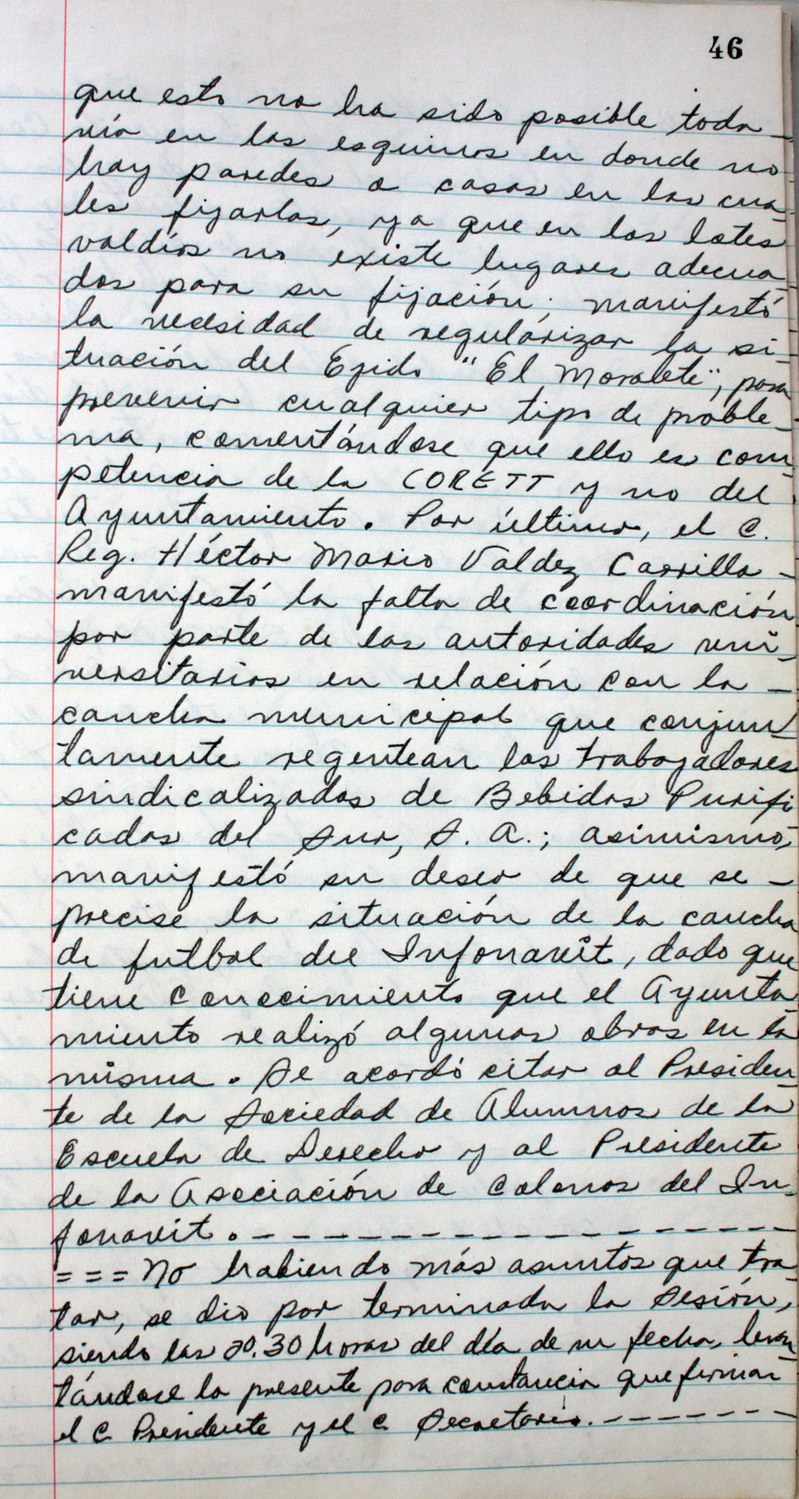 46
que esto no ha sido posible toda-
vía en las esquinas en donde no
hay paredes o casas en las cua-
les fijarlas, ya que en los lotes
valdíos no existe lugares adecua-
dos para su fijación; manifestó
la necesidad de regularizar la si-
tuación del Egido "El Moralete", para
prevenir cualquier tipo de proble-
ma, comentándose que ello es com-
petencia de la CORETT y no del
Ayuntamiento. Por último, el C.
Reg. Héctor Mario Valdez Carrillo -
manifestó la falta de coordinación
por parte de las autoridades uni-
versitarias en relación con la -
cancha municipal que conjun-
tamente regentean los trabajadores
sindicalizados de Bebidas Purifi
cadas del Sur, S. A.; asimismo,
manifestó su deseo de que se -
precise la situación de la cancha
de futbol del Infonavit, dado que
tiene conocimiento que el Ayunta-
miento realizó algunas obras en la
misma. Se acordó citar al Presiden-
te de la Sociedad de Alumnos de la
Escuela de Derecho y al Presidente
de la Asociación de Colonos del In-
fonavit. - - - - - - - - - - - - - - - - -
= = = No habiendo más asuntos que tra-
tar, se dio por terminada la Sesión,
siendo las 20.30 horas del día de su fecha, levan-
tándose la presente para constancia que firman
el C. Presidente y el C. Secretario. - - - - - - -